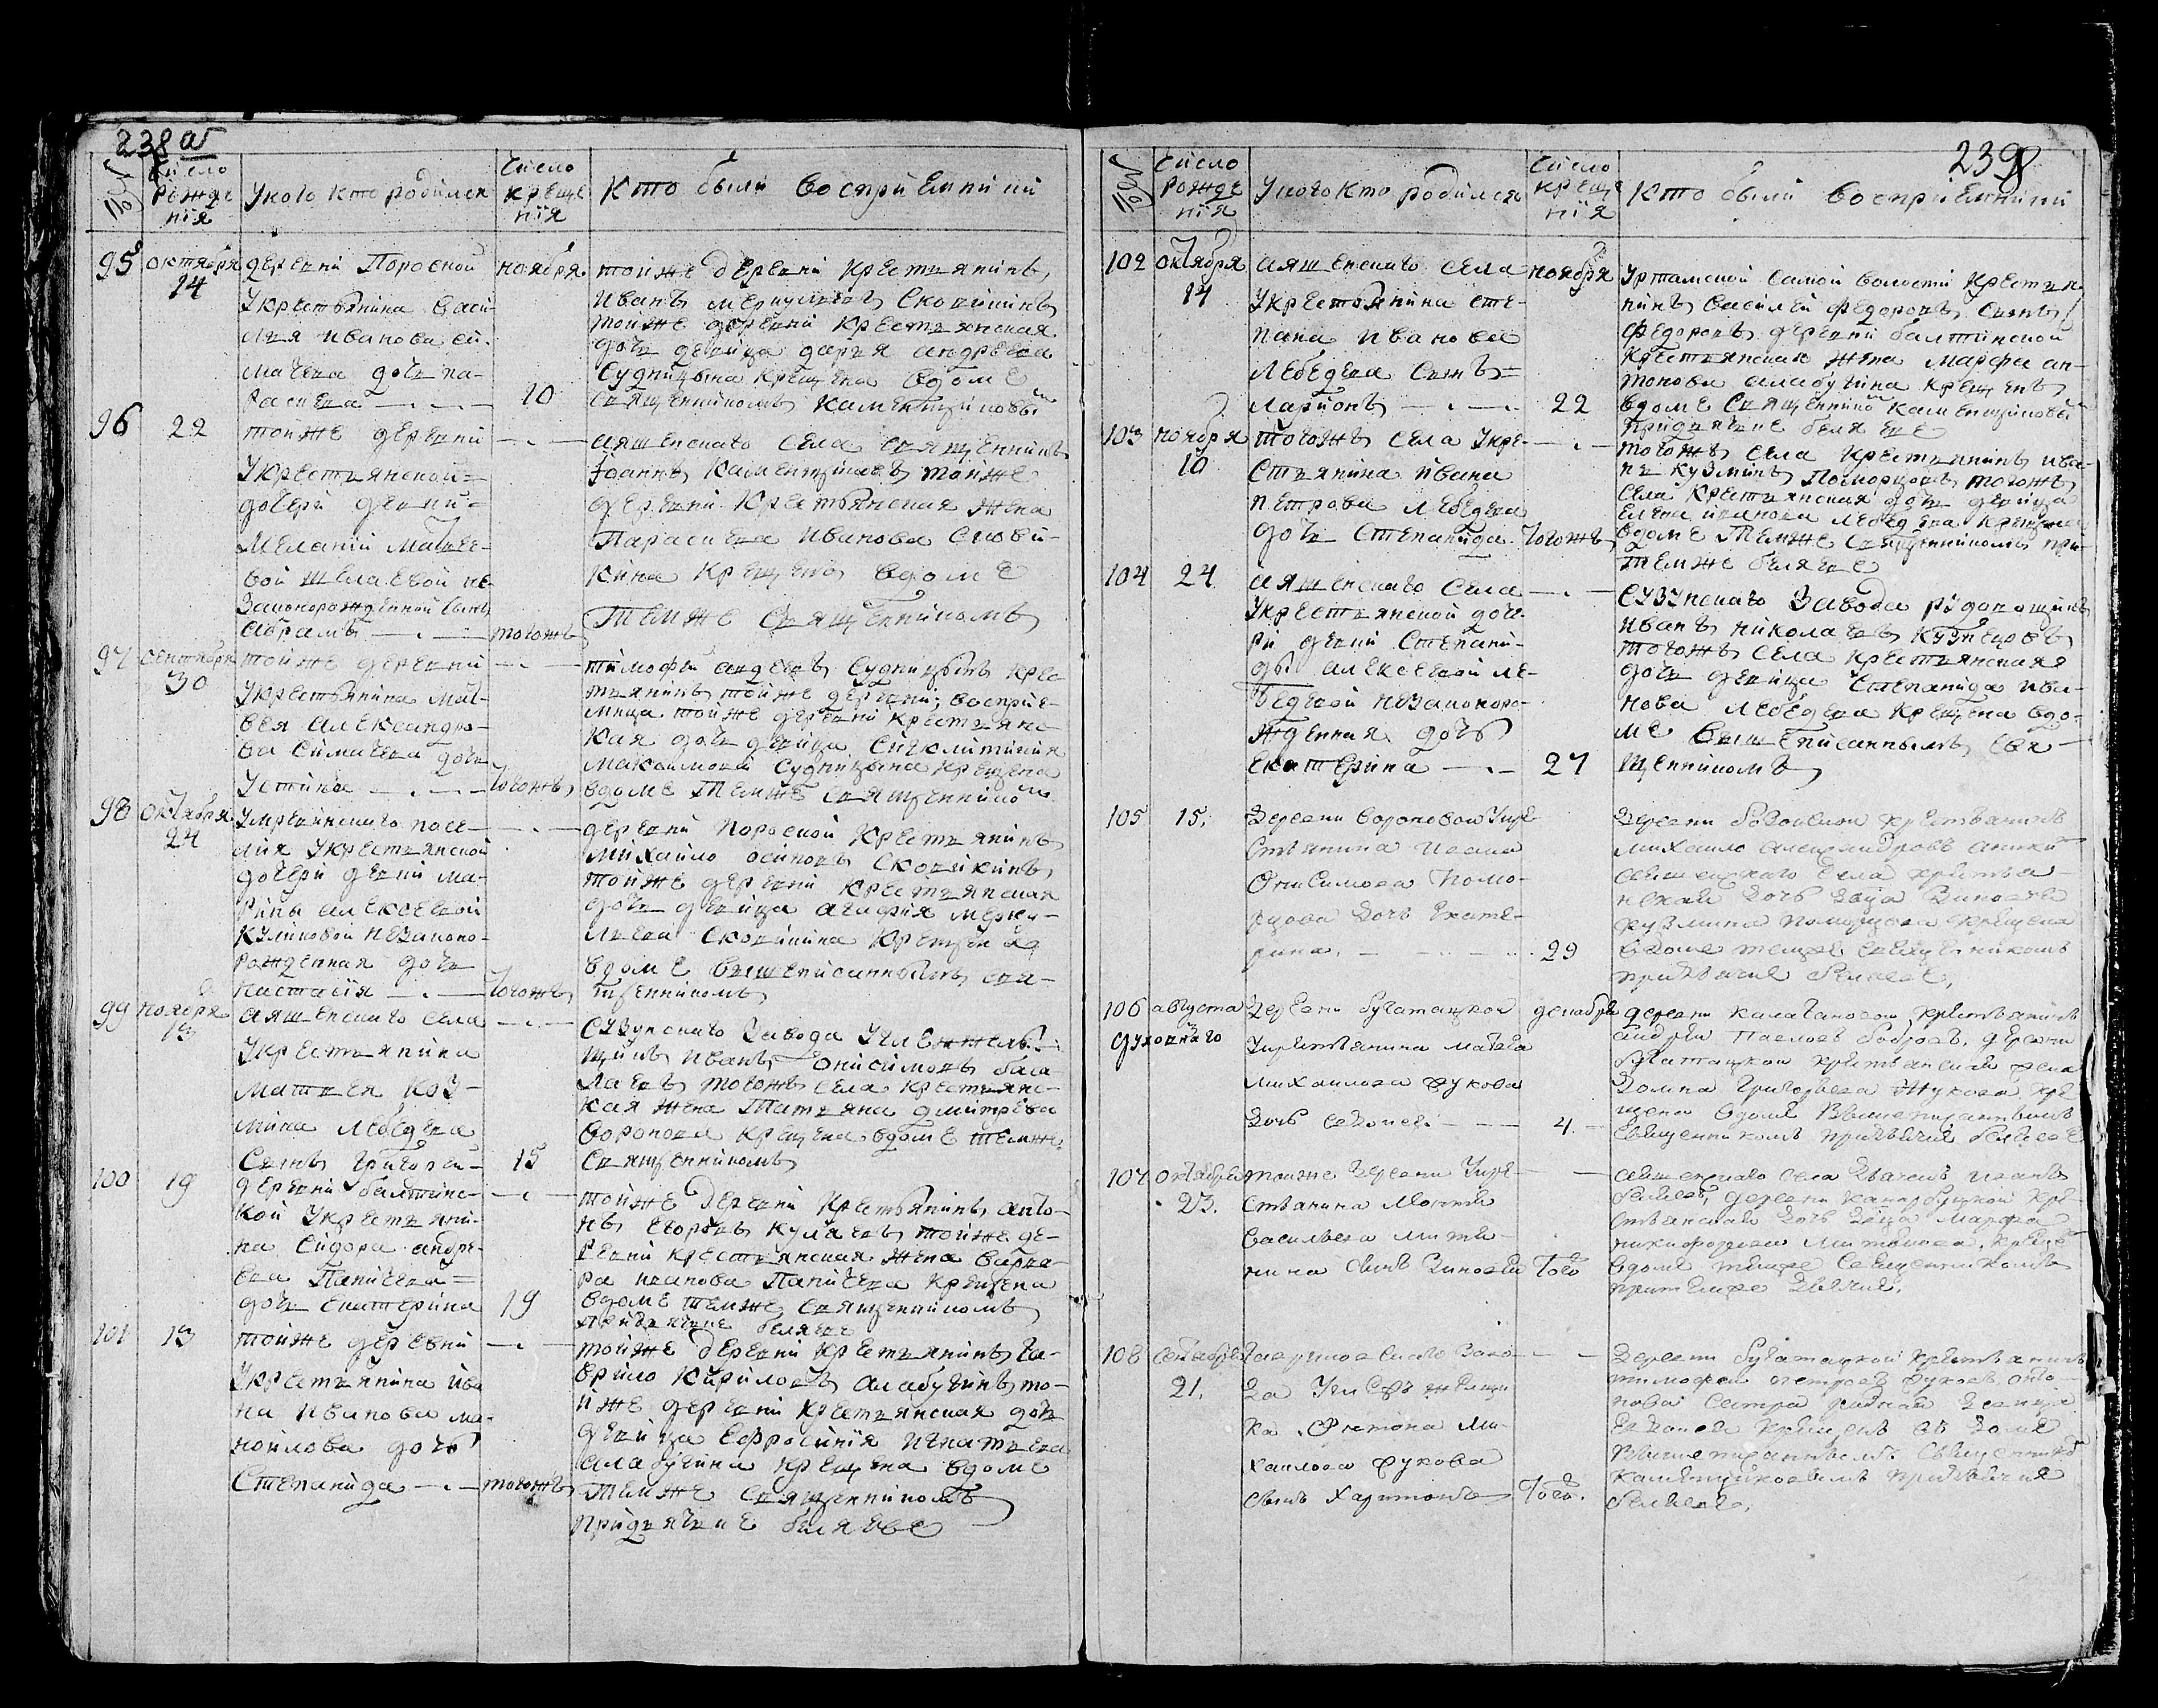 238 об
№
Число
Рожде
нія
У кого кто родился
Число
Креще
нія
Кто были восприемники
95
октября
14
деревни Поросной
У крестьянина Васи-
лья Иванова Си-
мачева дочь Па-
расиева
ноября
10
тойже деревни крестьянинъ
Иванъ Меркульевъ Скопинъ
тойже деревни крестьянская
дочь девица Дарья Андреева
Судницына крещена в доме
Священникомъ Каменщиковы
96
22
тойже деревни
У крестьянской
дочери девки
Меланіи Матвее-
вой не-
законорожденной сынъ
Абрамъ
тогожъ
Аяшенскаго села Священникъ
Іоаннъ Каменщиковъ тойже
деревни крестьянская жена
Парасиева Иванова
крещенъ в доме
темже Священникомъ
97
Сентября
30
тойже деревни
У крестьянина Мат-
вея Александро-
ва Симачева дочь
Устинья
тогожъ
Тимофеи Судницынъ крес-
тьянинъ тойже деревни, восприе-
мница тойже деревни крестьянс-
кая дочь девица Сигклитикия
Максимова Судницына крещена
в доме темже Священнико
98
октября
24
лия У крестьянской
дочери девки Ма-
рины Алексеевой
Куликовой незаконо-
рожденная дочь
Настасія
тогожъ
деревни Поросной крестьянинъ
Михайло Осиповъ
тойже деревни крестьянская
дочь девица Агафия Мерку-
льева крещена
в доме вышеписаннымъ свя-
щенникомъ
99
ноября
13
Аяшенскаго села
У крестьянина
Матвея Коз-
мина Лебедева
Сынъ Григорей
15
Сузунскаго завода
Иванъ Онисимовъ
тогожъ села крестьянс-
кая жена Татьяна Дмитрева
Воронова крещенъ в доме темже
Священникомъ
100
19
деревни Балтинс-
кой У крестьяни-
на Сидора Андре-
ева Папичева
дочь Екатерина
19
тойже деревни крестьянинъ Анто-
нъ Егоровъ Кулаевъ тойже де-
ревни крестьянская жена Варва-
ра Иванова Папичева крещена
в доме темже Священникомъ
при дьячке Беляеве
101
13
тойже деревни
У крестьянина Ива
на Иванова Ма-
ноилова дочь
Степанида
тогожъ
тойже деревни крестьянинъ Га-
врило Кириловъ Алабугинъ то-
йже деревни крестьянская дочь
девица Ефросинія Игнатьева
Алабугина крещена в доме
темже Священникомъ
при дьячке Беляеве
239
№
Число
рожде
нія
У кого кто родился
Число
креще
нія
Кто были восприемники
102
октября
14
Аяшенскаго села
У крестьянина Сте-
пана Иванова
Лебедева Сынъ
Ларионъ
ноября
22
Уртамской самой волости крестья
нинъ Василей Федоровъ Сынъ
Федоровъ деревни Балтинской
крестьянская жена Марфа Ан-
тонова Алабугина крещенъ
в доме Священнико Каменщиковы
при дьячке Беляеве
103
ноября
10
тогожъ села У кре-
стьянина Ивана
Петрова Лебедева
дочь Степанида
тогожъ
тогожъ села крестьянинъ Ива-
нъ Кузминъ Поморцовъ тогожъ
села крестьянская дочь девица
Елена Иванова Лебедева крещена
в доме темже Священникомъ при
темже Беляеве
104
24
Аяшенскаго села
У крестьянской доче-
ри девки Степани-
ды Алексеевой Ле-
бедевой незаконоро-
жденная дочь
Екатерина
27
Сузунскаго завода рудовощикъ
Иванъ Николаевъ Кузнецовъ
тогожъ села крестьянская
дочь девица Степанида Ива-
нова Лебедева крещена в до-
ме вышеписаннымъ свя-
щенникомъ
105
15.
Деревни Вороновой У кре-
стьянина Ивана
Онисимова Помо-
рцова дочь Екате-
рина.
29
Деревни крестьянинъ
Михайло Александровъ
Аяшенскаго села крестья-
нская дочь девца Зиновья
Кузмина Поморцова крещена
в доме темже Священникомъ
при дьячке Беляеве.
106
августа
Духовнаго
Деревни Бугатацкой
У крестьянина Матвея
Михайлова Жукова
дочь
декабря
4.
деревни Калаганогой крестьянинъ
Андрей Павловъ Бобровъ, деревни
Бугатацкой крестьянская жена
Домна Григорьева Жукова, кре
щена в доме вышеписаннымъ
Священникомъ при дьячке Беляеве
107
октября
23.
тойже деревни У кре-
стьянина
Васильева Митю-
нина Сынъ Зиновей
Того
Аяшенскаго села дьячекъ Иванъ
Беляевъ, деревни кре-
стьянская дочь девца Марфа
Никифорова креще
в доме темже Священникомъ
при темже дьячке.
108
Сентября
21.
Гавриловскаго заво-
да
ка Ми-
хайлова Жукова
Сынъ Харитонъ
Того.
Деревни Бугатацкой крестьянинъ
Тимофей Петровъ Жуковъ, онаго
сестра родная девица
крещенъ в доме
вышеписаннымъ Священнико
Каменщиковымъ при дьячке
Беляеве.